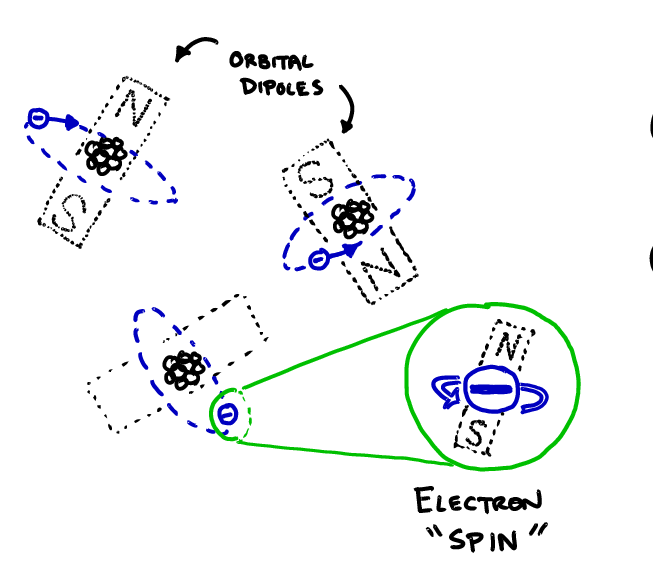 ORBITAL
DIPOLES
N
S
S
N
N
S
ELECTRON
"SPIN"